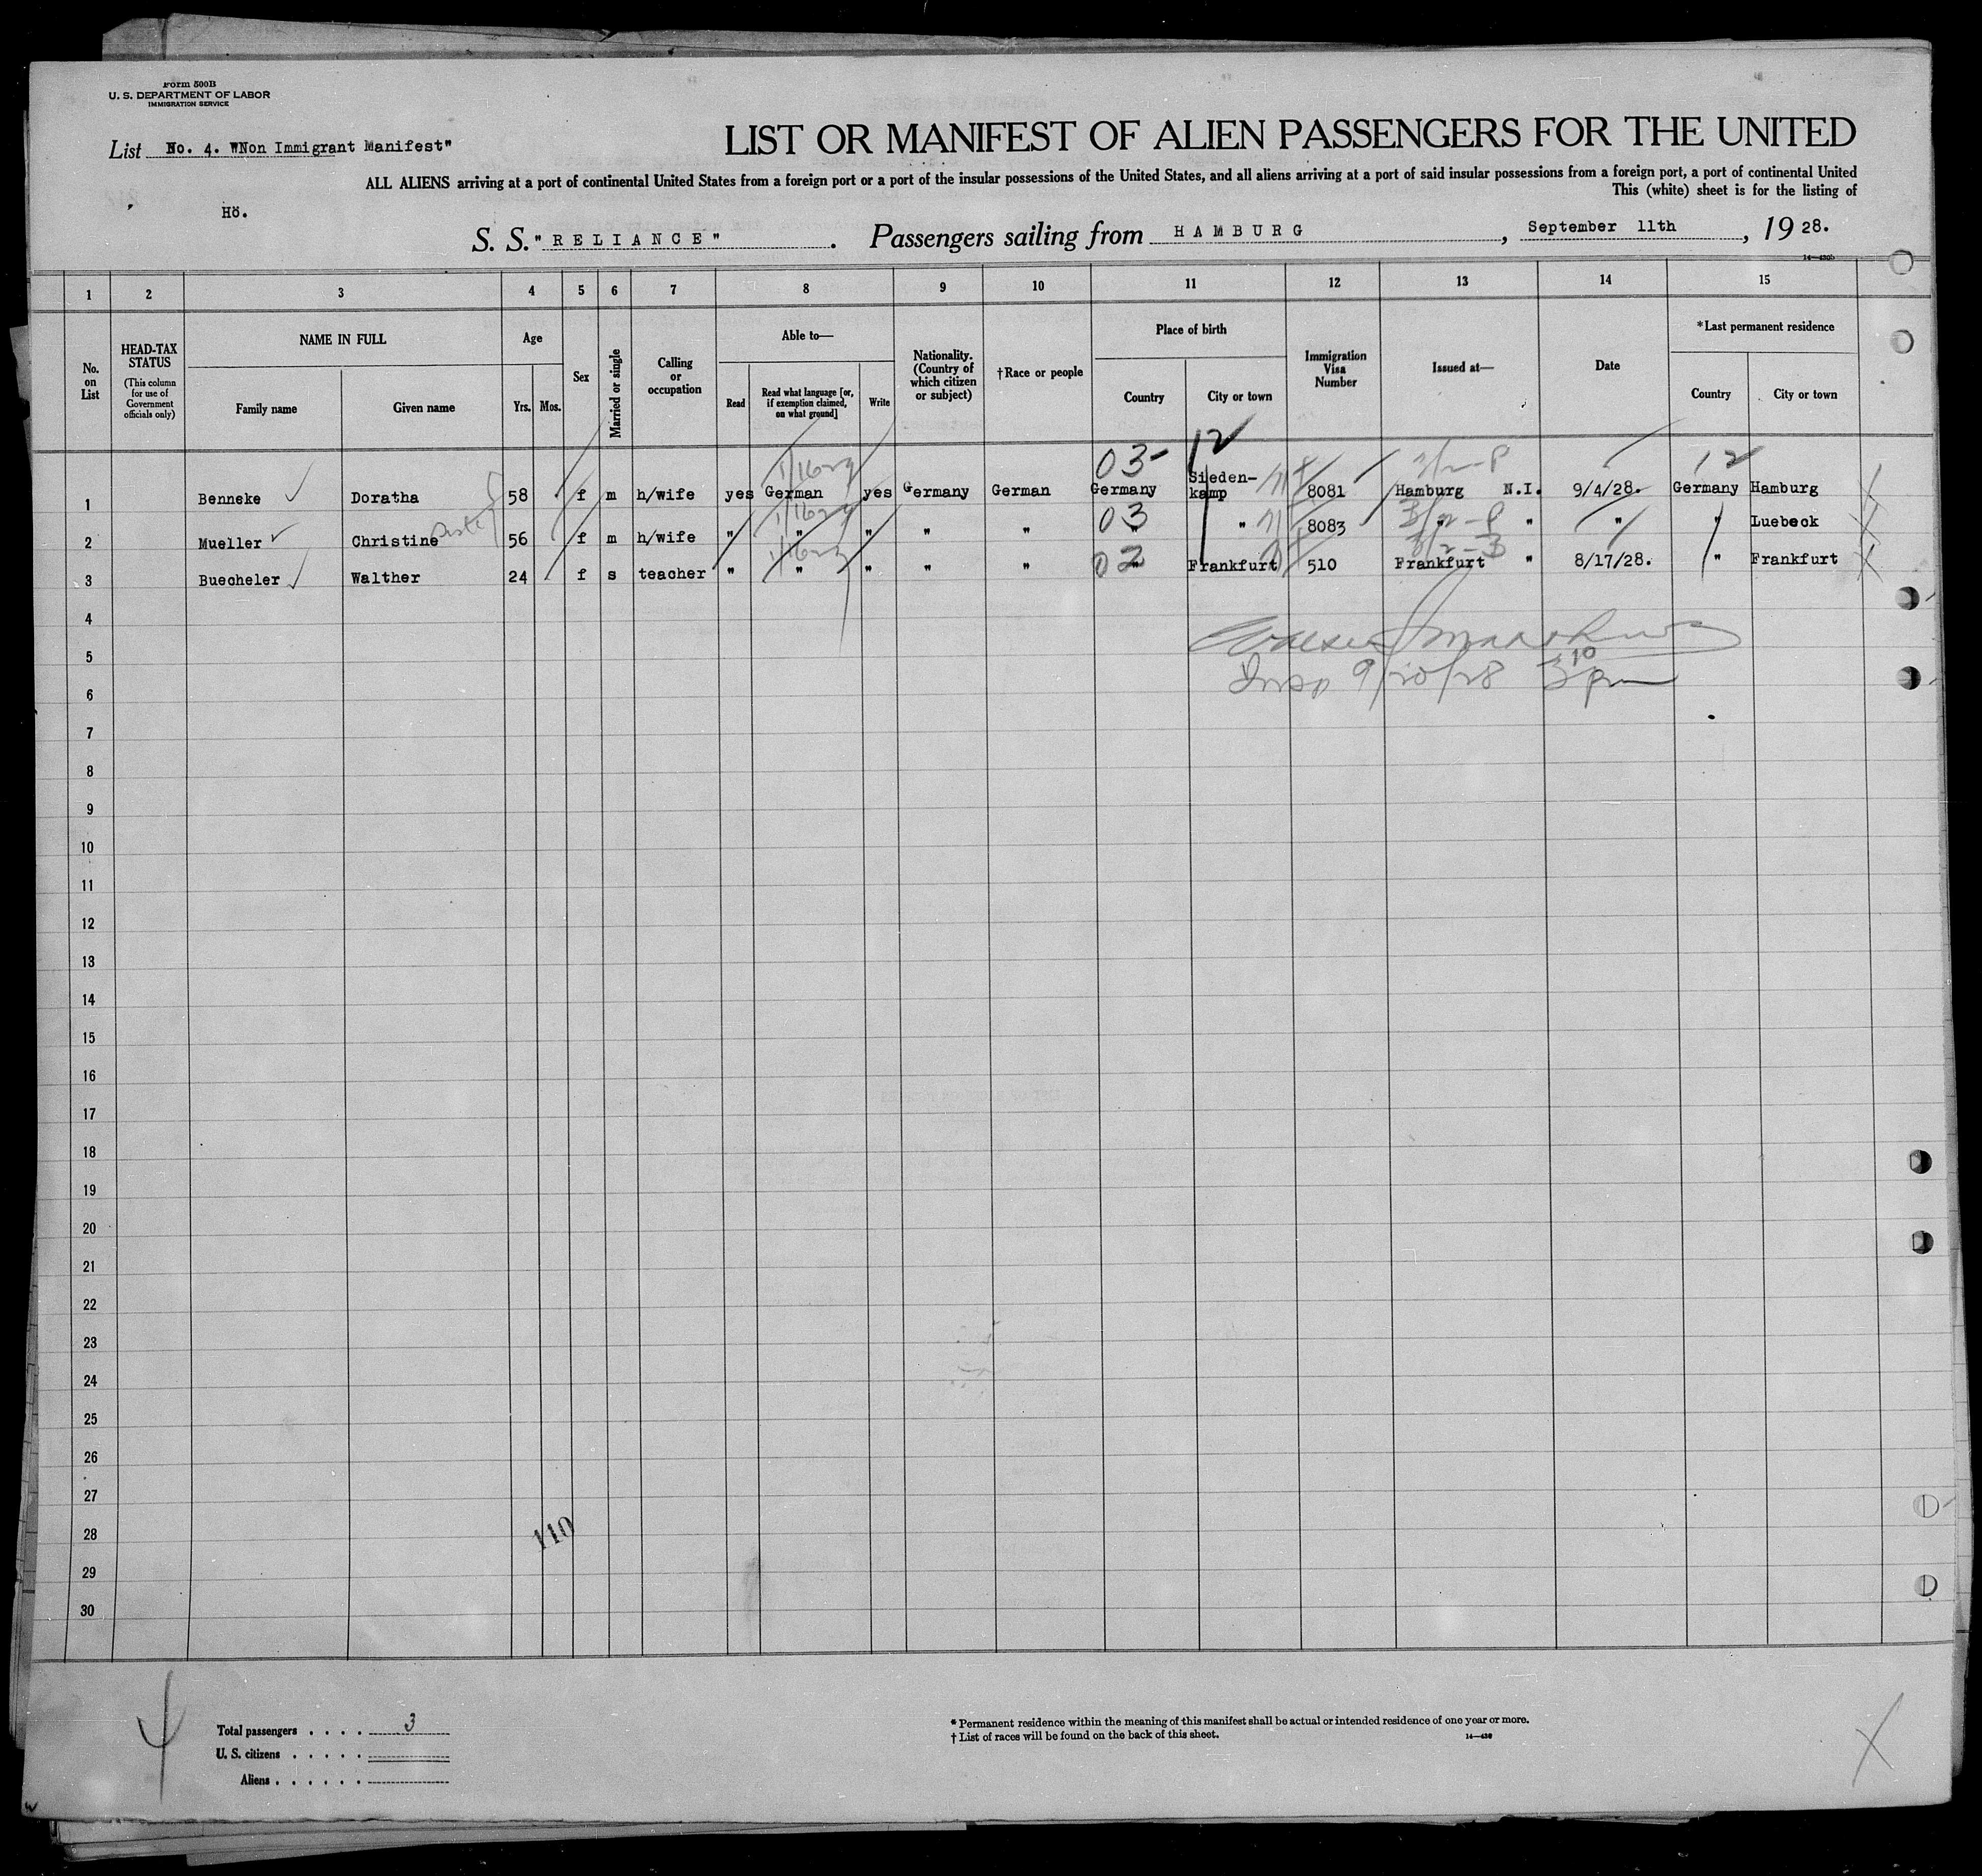 Form 500B
U. S. DEPARTMENT OF LABOR
IMMIGRATION SERVICE
List No. 4. WNon Immigrant Manifest"
LIST OR MANIFEST OF ALIEN PASSENGERS FOR THE UNITED
ALL ALIENS arriving at a port of continental United States from a foreign port or a port of the insular possessions of the United States, and all aliens arriving at a port of said insular possessions from a foreign port, a port of continental United
This (white) sheet is for the listing of
Hö.
S. S. "RELIANCE". Passengers sailing from HAMBURG, September 11th, 1928.
1 2 3 4 5 6 7 8 9 10 11 12 13 14 15
No. on List
HEAD-TAX STATUS (This column for use of Government officials only)
NAME IN FULL
Family name Given name
Age
Yrs. Mos.
Sex
Married or single
Calling or occupation
Able to—
Read Read what language [or, if exemption claimed, on what ground] Write
Nationality. (Country of which citizen or subject)
†Race or people
Place of birth
Country City or town
Immigration Visa Number
Issued at—
Date
*Last permanent residence
Country City or town
03 12 12
1 Benneke Doratha 58 f m h/wife yes German yes Germany German Germany Sieden-kamp 8081 Hamburg N.I. 9/4/28. Germany Hamburg
03
2 Mueller Christine 56 f m h/wife " " " " " " " 8083 " " " " Luebeck
3 Buecheler Walther 24 f s teacher " " " " " " Frankfurt 510 Frankfurt " 8/17/28. " Frankfurt
4
5
Insp 9/20/28 3 10 pm
6
7
8
9
10
11
12
13
14
15
16
17
18
19
20
21
22
23
24
25
26
27
28
110
29
30
Total passengers . . . . 3
U. S. citizens . . . . .
Aliens . . . . . .
* Permanent residence within the meaning of this manifest shall be actual or intended residence of one year or more.
† List of races will be found on the back of this sheet.
14—430